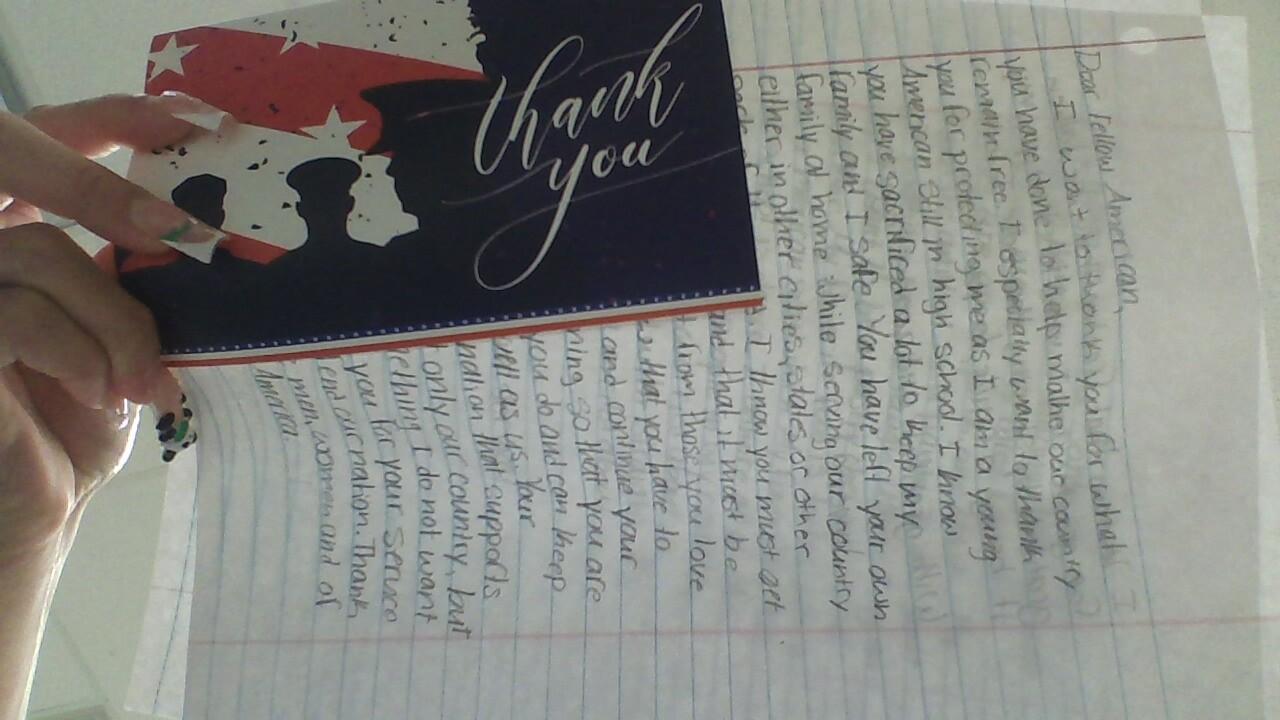 thank
you
Dear fellow American,
I want to thank you for what
you have done to help make our country
remain free. I especially want to thank
you for protecting me as I am a young
American still in high school. I know
you have sacrificed a lot to keep my
family and I safe. You have left your own
family at home while serving our country
either in other cities, states or other
I know you must get
and that it must be
from those you love
that you have to
and continue your
so that you are
you do and can keep
as us. Your
nation that supports
only our country, but
I do not want
you for your service
and our nation. Thank
men, women and of
America.